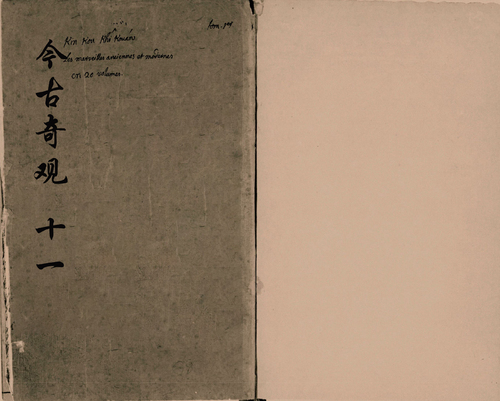 今古奇观 十一
Kin Kou Khi Kouan
les merveilles anciennes et modernes
en 20 volumes